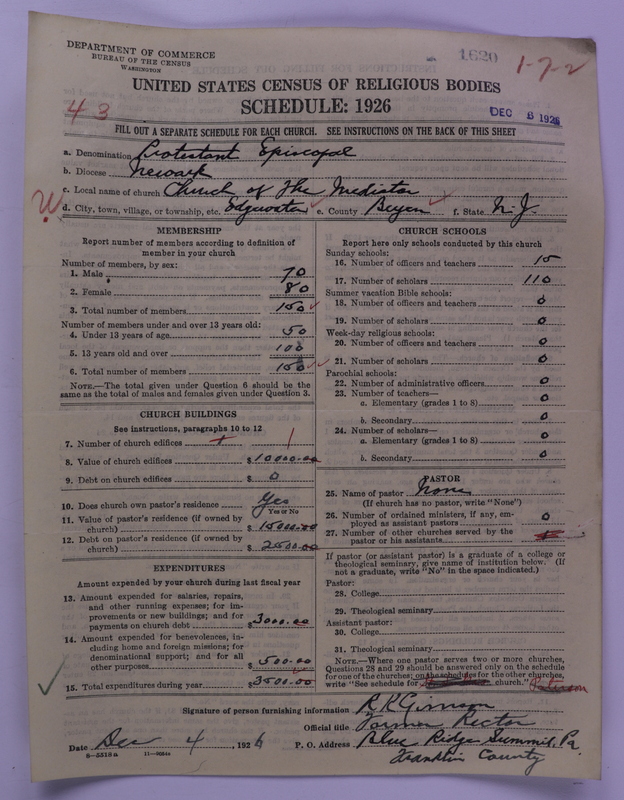 DEPARTMENT OF COMMERCE
BUREAU OF THE CENSUS
WASHINGTON
1620
1-7-2
UNITED STATES CENSUS OF RELIGIOUS BODIES
SCHEDULE: 1926
43
DEC 8 1926
FILL OUT A SEPARATE SCHEDULE FOR EACH CHURCH. SEE INSTRUCTIONS ON THE BACK OF THIS SHEET
a. Denomination Protestant Episcopal
b. Diocese Newark
c. Local name of church Church of the Mediator
d. City, town, village, or township, etc. Edgewater e. County Bergen f. State N.J.
MEMBERSHIP
Report number of members according to definition of
member in your church
Number of members, by sex:
1. Male 70
2. Female 80
3. Total number of members 150
Number of members under and over 13 years old:
4. Under 13 years of age 50
5. 13 years old and over 100
6. Total number of members 150
NOTE.—The total given under Question 6 should be the
same as the total of males and females given under Question 3.
CHURCH BUILDINGS
See instructions, paragraphs 10 to 12
7. Number of church edifices 1
8. Value of church edifices $10000.00
9. Debt on church edifices $ 0
10. Does church own pastor's residence Yes
Yes or No
11. Value of pastor's residence (if owned by
church) $15000.00
12. Debt on pastor's residence (if owned by
church) $2500.00
EXPENDITURES
Amount expended by your church during last fiscal year
13. Amount expended for salaries, repairs,
and other running expenses; for im-
provements or new buildings; and for
payments on church debt $3000.00
14. Amount expended for benevolences, in-
cluding home and foreign missions; for
denominational support; and for all
other purposes $500.00
15. Total expenditures during year $3500.00
CHURCH SCHOOLS
Report here only schools conducted by this church
Sunday schools:
16. Number of officers and teachers 15
17. Number of scholars 110
Summer vacation Bible schools:
18. Number of officers and teachers 0
19. Number of scholars 0
Week-day religious schools:
20. Number of officers and teachers 0
21. Number of scholars 0
Parochial schools:
22. Number of administrative officers 0
23. Number of teachers—
a. Elementary (grades 1 to 8) 0
b. Secondary 0
24. Number of scholars—
a. Elementary (grades 1 to 8) 0
b. Secondary 0
PASTOR
25. Name of pastor None
(If church has no pastor, write "None")
26. Number of ordained ministers, if any, em-
ployed as assistant pastors 0
27. Number of other churches served by the
pastor or his assistants
If pastor (or assistant pastor) is a graduate of a college or
theological seminary, give name of institution below. (If
not a graduate, write "No" in the space indicated.)
Pastor:
28. College
29. Theological seminary
Assistant pastor:
30. College
31. Theological seminary
NOTE.—Where one pastor serves two or more churches,
Questions 28 and 29 should be answered only on the schedule
for one of the churches; on the schedules for the other churches,
write "See schedule for church."
Signature of person furnishing information R K Gimson
Official title Former Rector
Date Dec 4, 1926 P. O. Address Blue Ridge Summit, Pa.
Franklin County
8—5518a 11—9054a